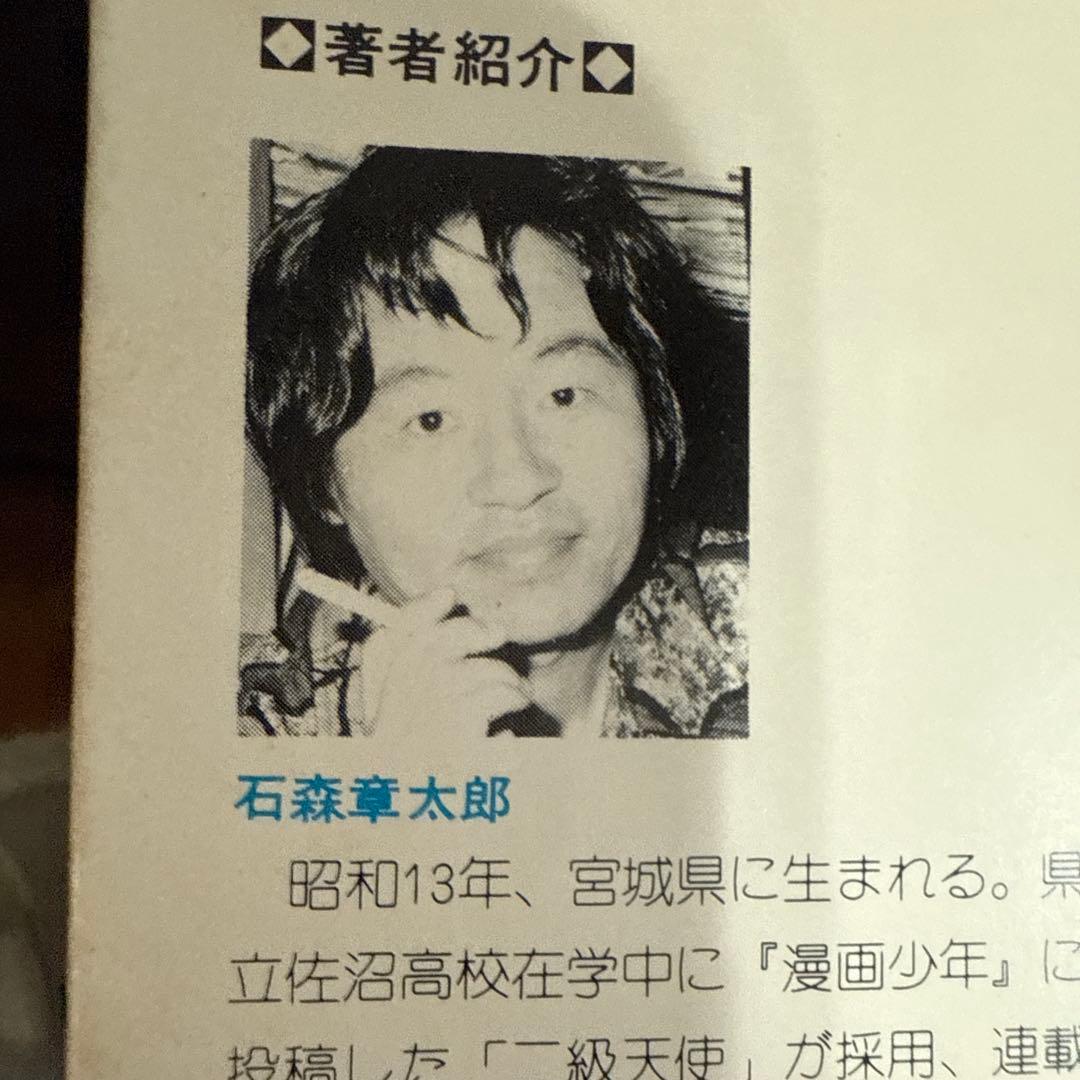 ◆著者紹介◆
石森章太郎
昭和13年、宮城県に生まれる。県
立佐沼高校在学中に『漫画少年』に
投稿した「二級天使」が採用、連載